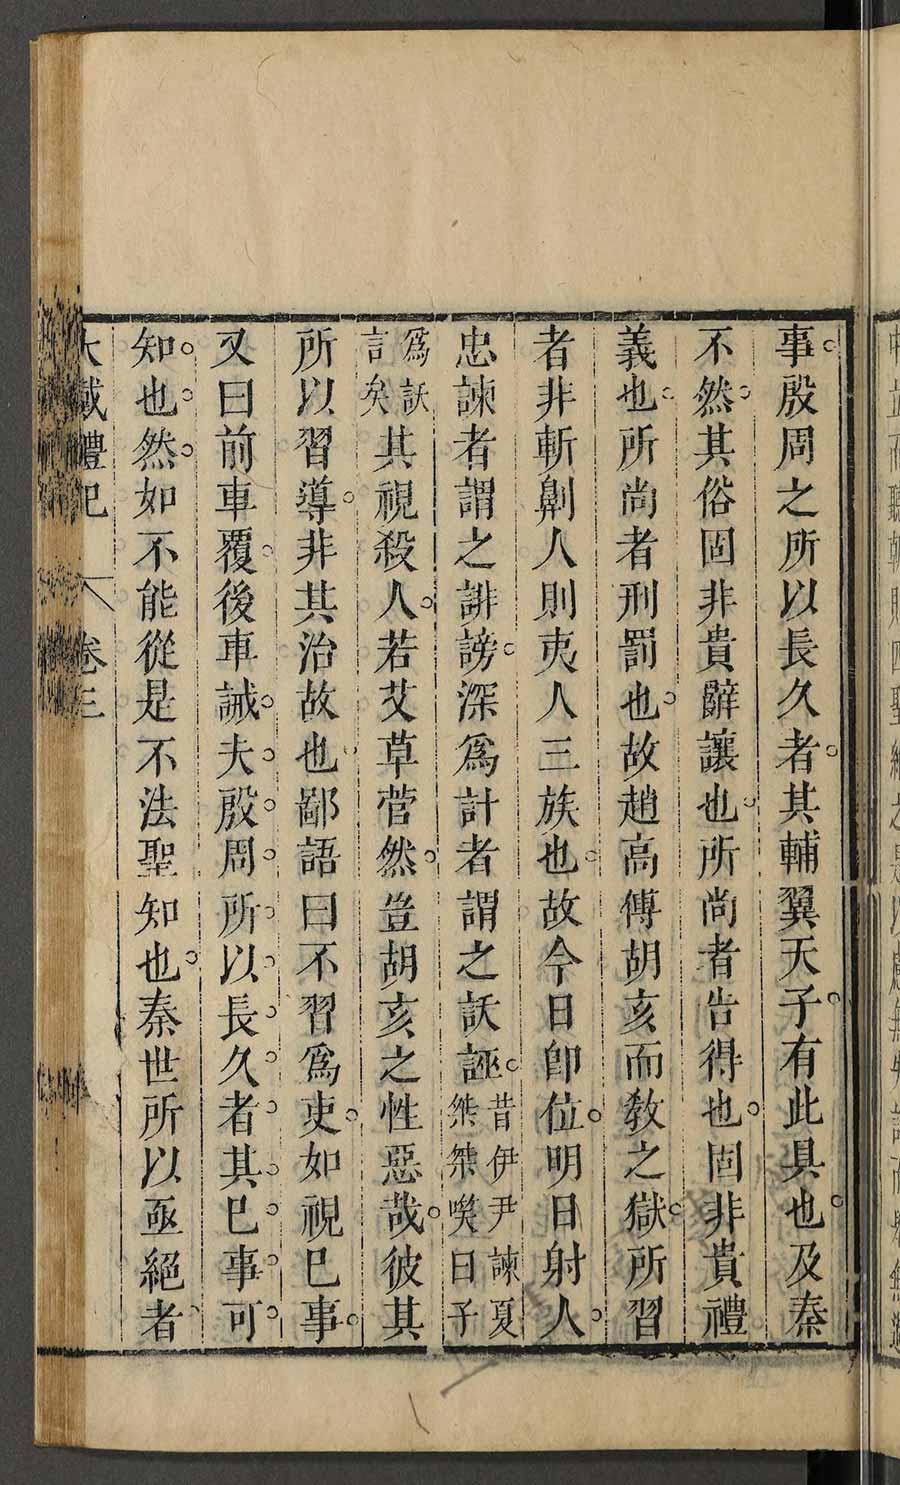 事殷周之所以長久者其輔翼天子有此具也及秦
不然其俗固非貴辭讓也所尚者告得也固非貴禮
義也所尚者刑罰也故趙高傅胡亥而敎之獄所習
者非斬劓人則夷人三族也故今日卽位明日射人
忠諫者謂之誹謗深爲計者謂之訞誣昔伊尹諫夏
桀桀㗛曰子
爲訞
言矣其視殺人若艾草菅然豈胡亥之性惡哉彼其
所以習導非其治故也鄙語曰不習爲吏如視已事
又曰前車覆後車誡夫殷周所以長久者其已事可
知也然如不能從是不法聖知也秦世所以亟絕者
大戴禮記 卷三